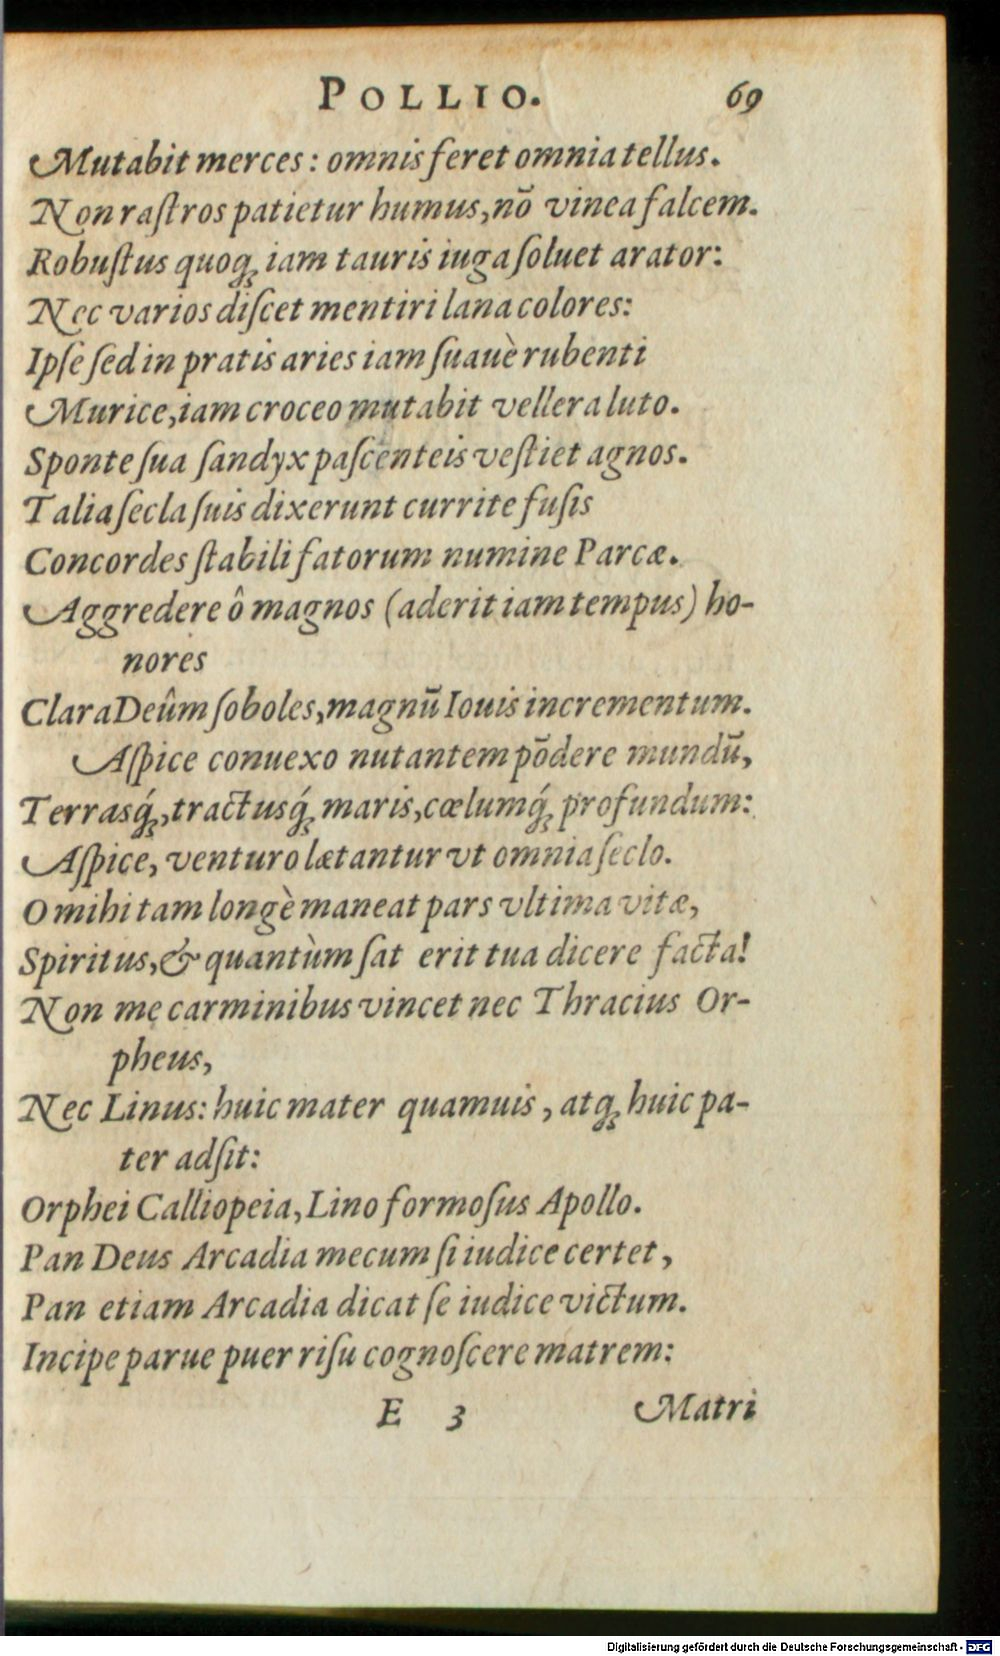 POLLIO. 69
Mutabit merces: omnis feret omnia tellus.
Non raſtros patietur humus, nõ vinea falcem.
Robuſtus quoqꝫ iam tauris iuga ſoluet arator:
Nec varios diſcet mentiri lana colores:
Ipſe ſed in pratis aries iam ſuauè rubenti
Murice, iam croceo mutabit vellera luto.
Sponte ſua ſandyx paſcenteis veſtiet agnos.
Talia ſecla ſuis dixerunt currite fuſis
Concordes ſtabili fatorum numine Parcæ.
Aggredere ô magnos (aderit iam tempus) ho-
nores
Clara Deûm ſoboles, magnũ Iouis incrementum.
Aſpice conuexo nutantem põdere mundũ,
Terrasq́ꝫ, tractusq́ꝫ maris, cœlumq́ꝫ profundum:
Aſpice, venturo lætantur vt omnia ſeclo.
O mihi tam longè maneat pars vltima vitæ,
Spiritus, & quantùm ſat erit tua dicere facta!
Non me carminibus vincet nec Thracius Or-
pheus,
Nec Linus: huic mater quamuis, atqꝫ huic pa-
ter adſit:
Orphei Calliopeia, Lino formoſus Apollo.
Pan Deus Arcadia mecum ſi iudice certet,
Pan etiam Arcadia dicat ſe iudice victum.
Incipe parue puer riſu cognoſcere matrem:
E 3 Matri
Digitalisierung gefördert durch die Deutsche Forschungsgemeinschaft - DFG